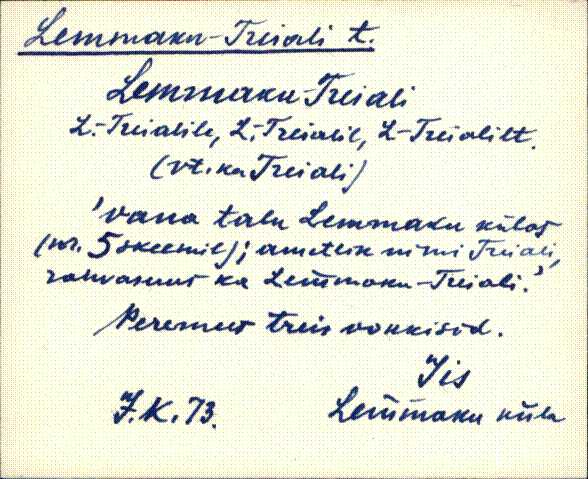 Lemmaku-Treiali t.
Lemmaku-Treiali
L.-Treialile, L.-Treialil, L-Treialilt.
(vt. ka Treiali)
'vana talu Lemmaku külas
(nr. 5 skeemil); ametlik nimi Treiali,
rahvasuus ka Lem̆maku-Treiali.'
Peremees treis vokkisid.
Iis
F.K. 73. Lem̆maku küla